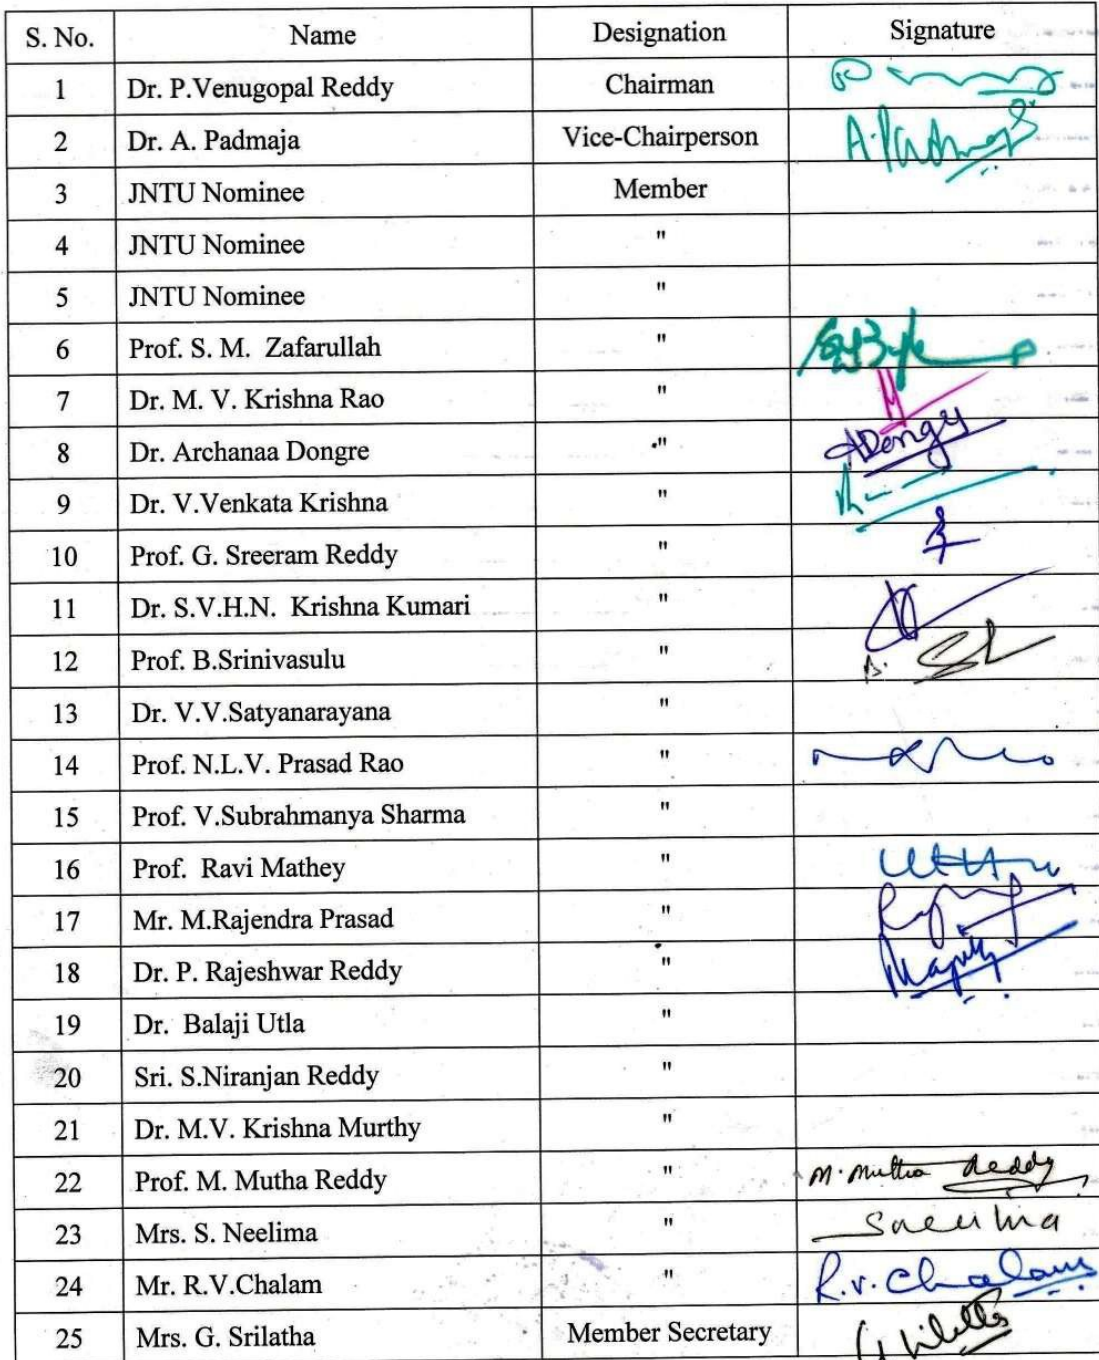 S. No. Name Designation Signature
1 Dr. P.Venugopal Reddy Chairman
2 Dr. A. Padmaja Vice-Chairperson A.Padmaja
3 JNTU Nominee Member
4 JNTU Nominee "
5 JNTU Nominee "
6 Prof. S. M. Zafarullah "
7 Dr. M. V. Krishna Rao "
8 Dr. Archanaa Dongre " ADongre
9 Dr. V.Venkata Krishna "
10 Prof. G. Sreeram Reddy "
11 Dr. S.V.H.N. Krishna Kumari "
12 Prof. B.Srinivasulu "
13 Dr. V.V.Satyanarayana "
14 Prof. N.L.V. Prasad Rao "
15 Prof. V.Subrahmanya Sharma "
16 Prof. Ravi Mathey "
17 Mr. M.Rajendra Prasad "
18 Dr. P. Rajeshwar Reddy "
19 Dr. Balaji Utla "
20 Sri. S.Niranjan Reddy "
21 Dr. M.V. Krishna Murthy "
22 Prof. M. Mutha Reddy " M. Mutha Reddy
23 Mrs. S. Neelima " Sneelima
24 Mr. R.V.Chalam " R.V.Chalam
25 Mrs. G. Srilatha Member Secretary